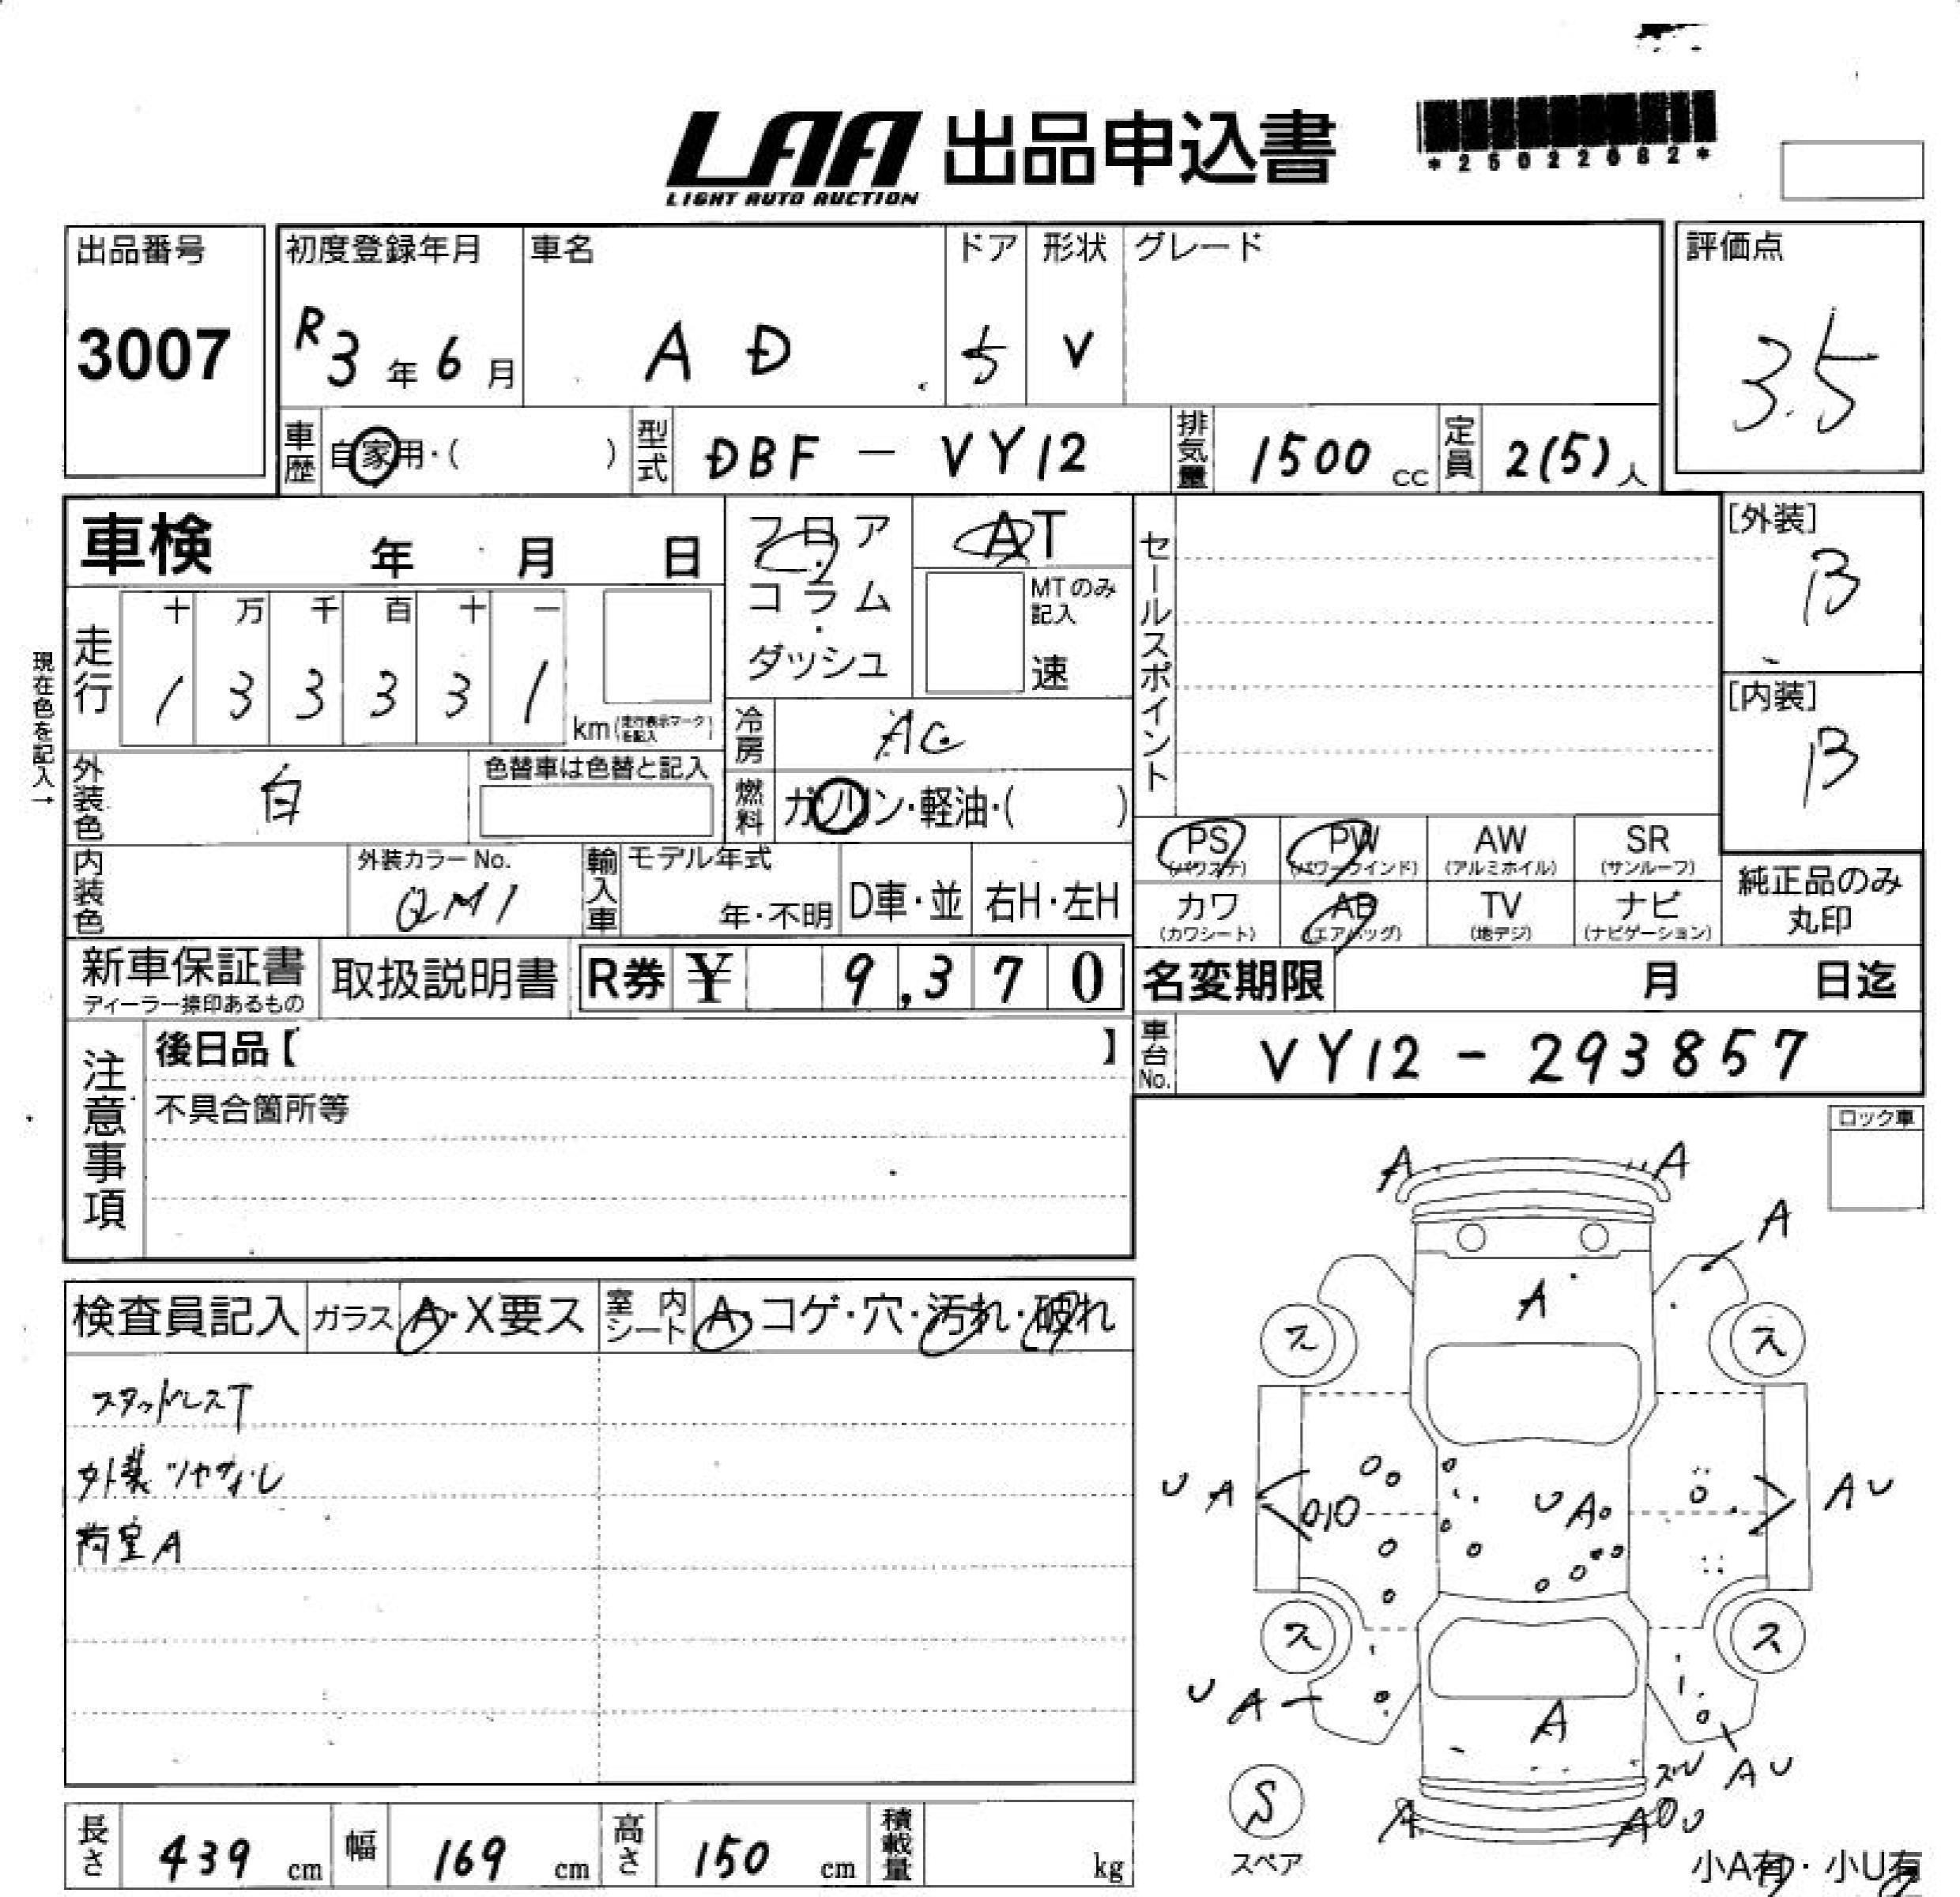 LAA 出品申込書
LIGHT AUTO AUCTION
*25022082*
出品番号
3007
初度登録年月
R3年6月
車名
AD
ドア
5
形状
V
グレード
評価点
3.5
車歴 自家用・( )
型式 DBF - VY12
排気量 1500 cc
定員 2(5)人
車検 年 月 日
フロア・コラム・ダッシュ
AT
MTのみ記入
速
セールスポイント
[外装]
B
[内装]
B
現在色を記入→
走行
十 万 千 百 十 一
1 3 3 3 3 1
km(走行表示マークを記入)
冷房 AC
外装色 白
色替車は色替と記入
燃料 ガソリン・軽油・( )
内装色
外装カラーNo.
QM1
輸入車
モデル年式
年・不明
D車・並
右H・左H
PS (パワステ)
PW (パワーウインド)
AW (アルミホイル)
SR (サンルーフ)
カワ (カワシート)
AB (エアバッグ)
TV (地デジ)
ナビ (ナビゲーション)
純正品のみ
丸印
新車保証書
ディーラー捺印あるもの
取扱説明書
R券 ¥ 9,370
名変期限 月 日迄
車台No. VY12 - 293857
注意事項
後日品【 】
不具合箇所等
ロック車
検査員記入
ガラス A・X要ス
室内シート A・コゲ・穴・汚れ・破れ
スタッドレスT
外装ツヤナシ
荷室A
A A
A
A
ス ス
U A
U A
A U
ス ス
U A
A
A U
S
スペア
A A U
小A有・小U有
長さ 439 cm
幅 169 cm
高さ 150 cm
積載量 kg